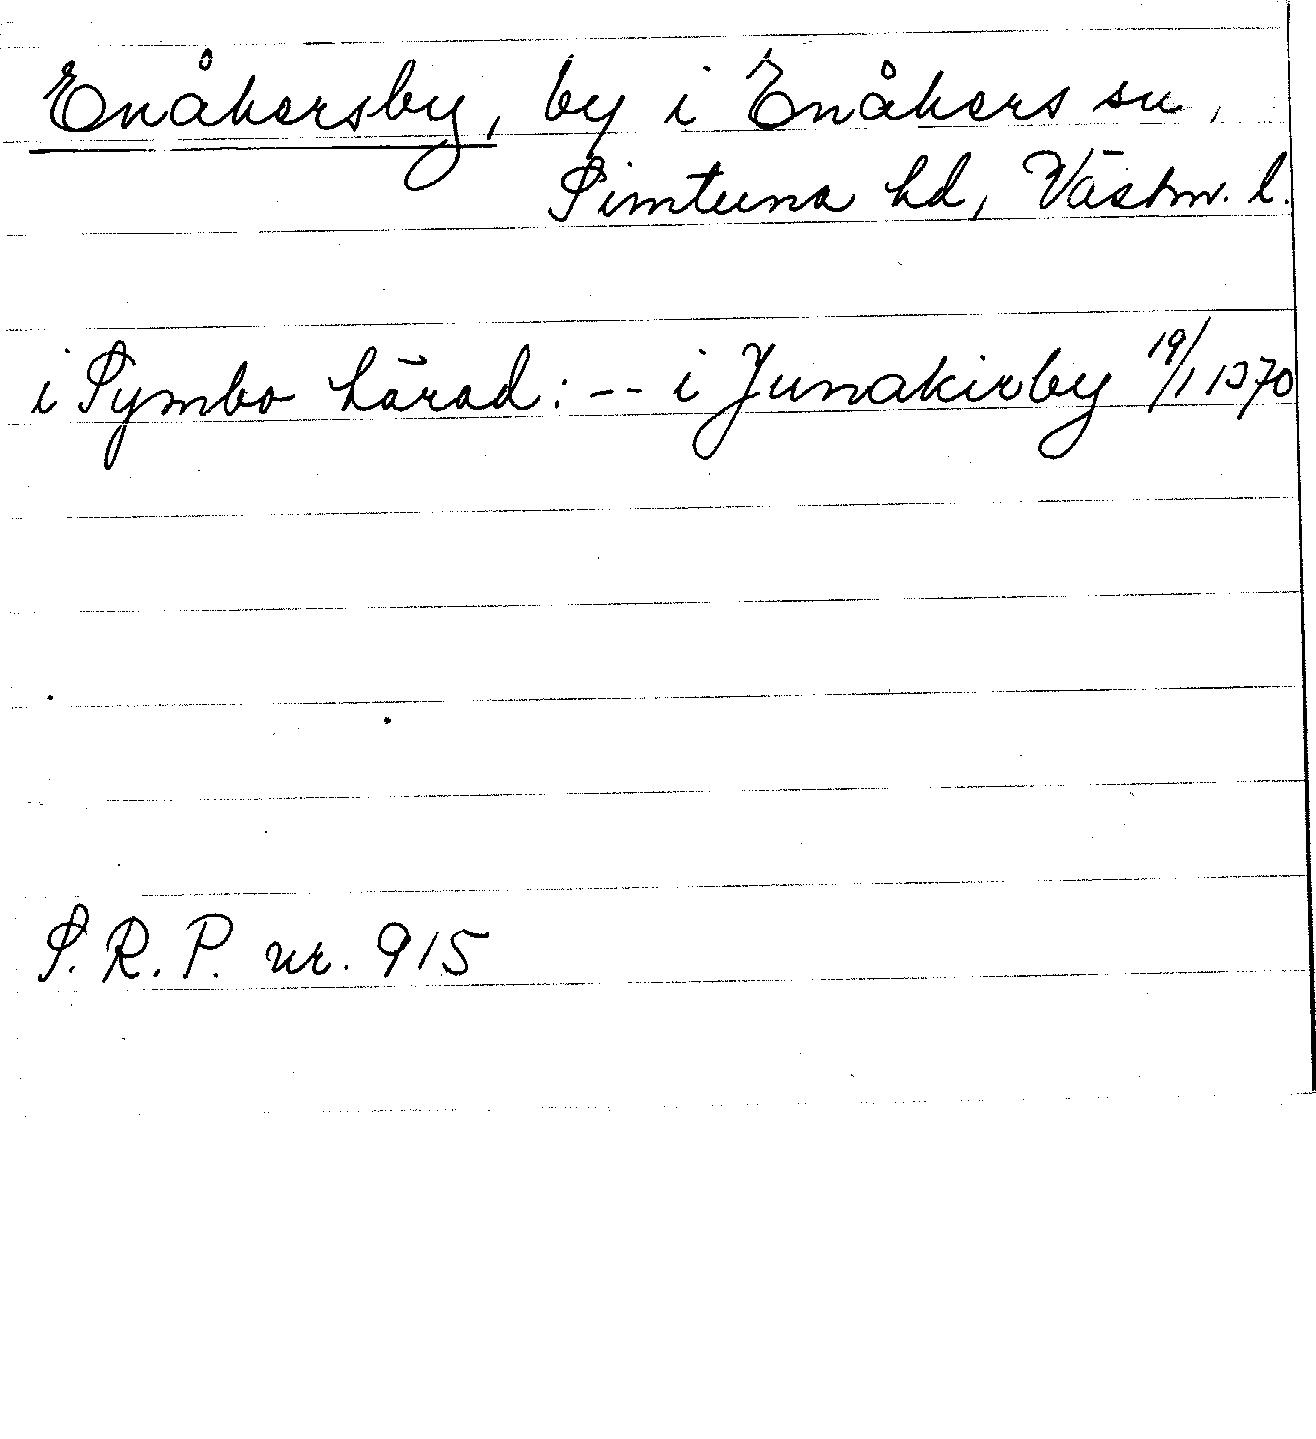 Enåkersby, by i Enåkers sn,
Simtuna hd, Västm. l.
i Symbo härad: -- i Junakirby 19/1 1370
S. R. P. nr. 915